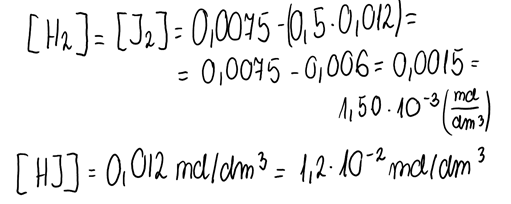 [H₂] = [J₂] = 0,0075 - (0,5 · 0,012) =
= 0,0075 - 0,006 = 0,0015 =
1,50 · 10⁻³ (mol/dm³)
[HJ] = 0,012 mol/dm³ = 1,2 · 10⁻² mol/dm³